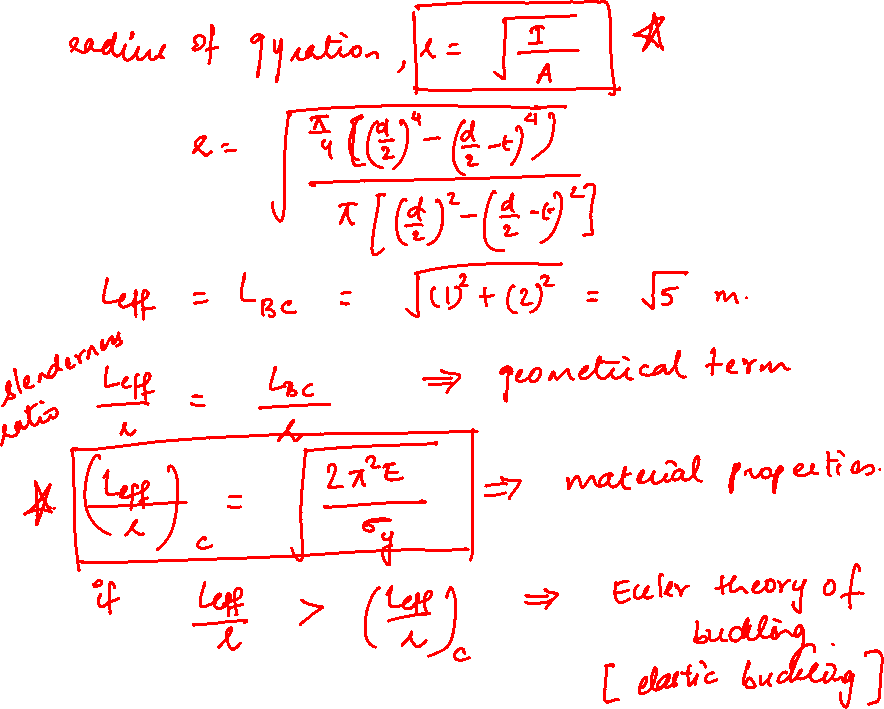 radius of gyration, r = √(I/A) ☆
r = √( π/4 [(d/2)^4 - (d/2 - t)^4] / π [(d/2)^2 - (d/2 - t)^2] )
L_eff = L_BC = √((1)^2 + (2)^2) = √5 m.
slenderness ratio L_eff/r = L_BC/r ⇒ geometrical term
☆ (L_eff/r)_c = √(2π^2E/σ_y) ⇒ material properties.
if L_eff/r > (L_eff/r)_c ⇒ Euler theory of
buckling
[elastic buckling]